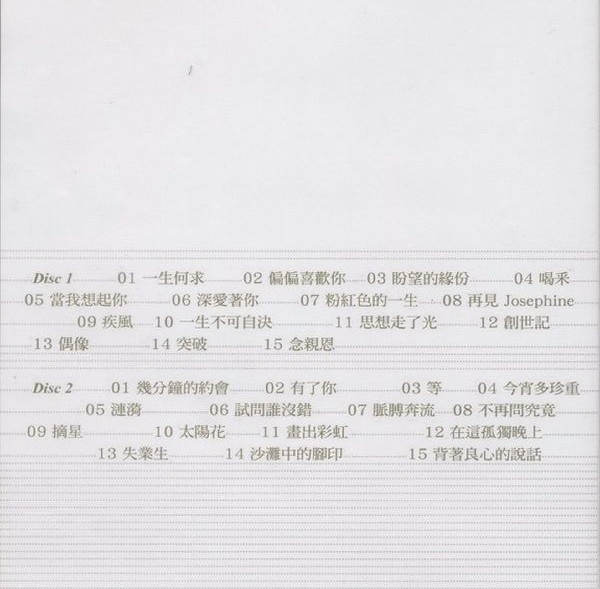 Disc 1 01 一生何求 02 偏偏喜歡你 03 盼望的緣份 04 喝釆
05 當我想起你 06 深愛著你 07 粉紅色的一生 08 再見 Josephine
09 疾風 10 一生不可自決 11 思想走了光 12 創世記
13 偶像 14 突破 15 念親恩
Disc 2 01 幾分鐘的約會 02 有了你 03 等 04 今宵多珍重
05 漣漪 06 試問誰沒錯 07 脈膊奔流 08 不再問究竟
09 摘星 10 太陽花 11 畫出彩虹 12 在這孤獨晚上
13 失業生 14 沙灘中的腳印 15 背著良心的說話